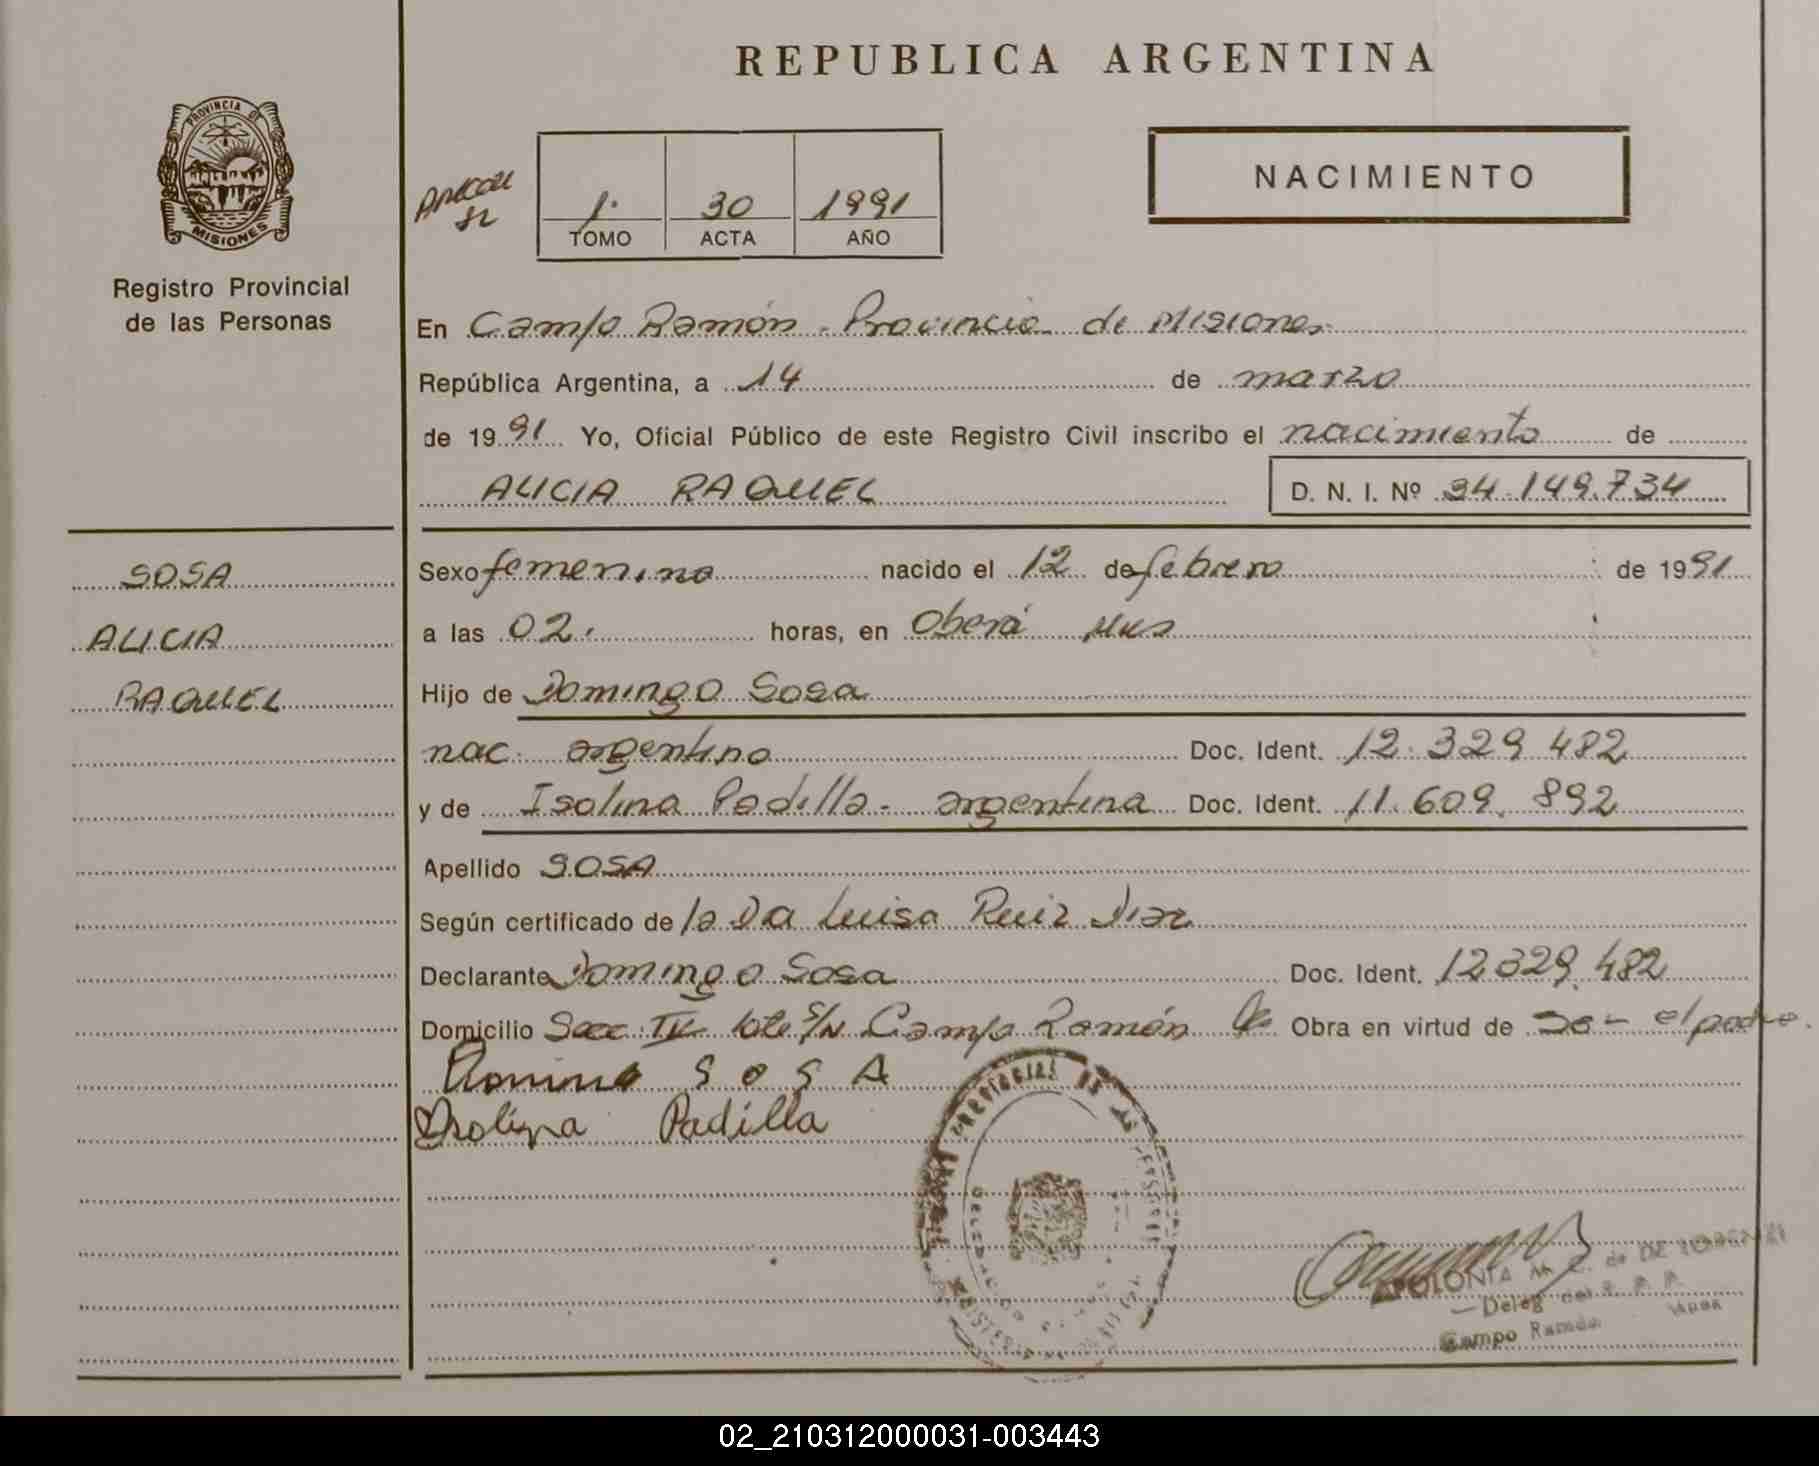 REPUBLICA ARGENTINA
PROVINCIA DE
MISIONES
Registro Provincial
de las Personas
NACIMIENTO
1. 30 1991
TOMO ACTA AÑO
En Campo Ramón. Provincia de Misiones
República Argentina, a 14 de marzo
de 1991 Yo, Oficial Público de este Registro Civil inscribo el nacimiento de
ALICIA RAQUEL D. N. I. Nº 34.149.734
SOSA
ALICIA
RAQUEL
Sexo femenino nacido el 12 de febrero de 1991
a las 02. horas, en Oberá Mnes
Hijo de Domingo Sosa
nac. argentino Doc. Ident. 12.329.482
y de Isolina Padilla - argentina Doc. Ident. 11.609.892
Apellido SOSA
Según certificado de la Da Luisa Ruiz Diaz
Declarante Domingo Sosa Doc. Ident. 12329.482
Domicilio Secc. IV lote S/N Campo Ramón Obra en virtud de Se - el padre.
Domingo SOSA
Isolina Padilla
APOLONIA M. C. de DE
Deleg del R. P. P.
Campo Ramón
02_210312000031-003443